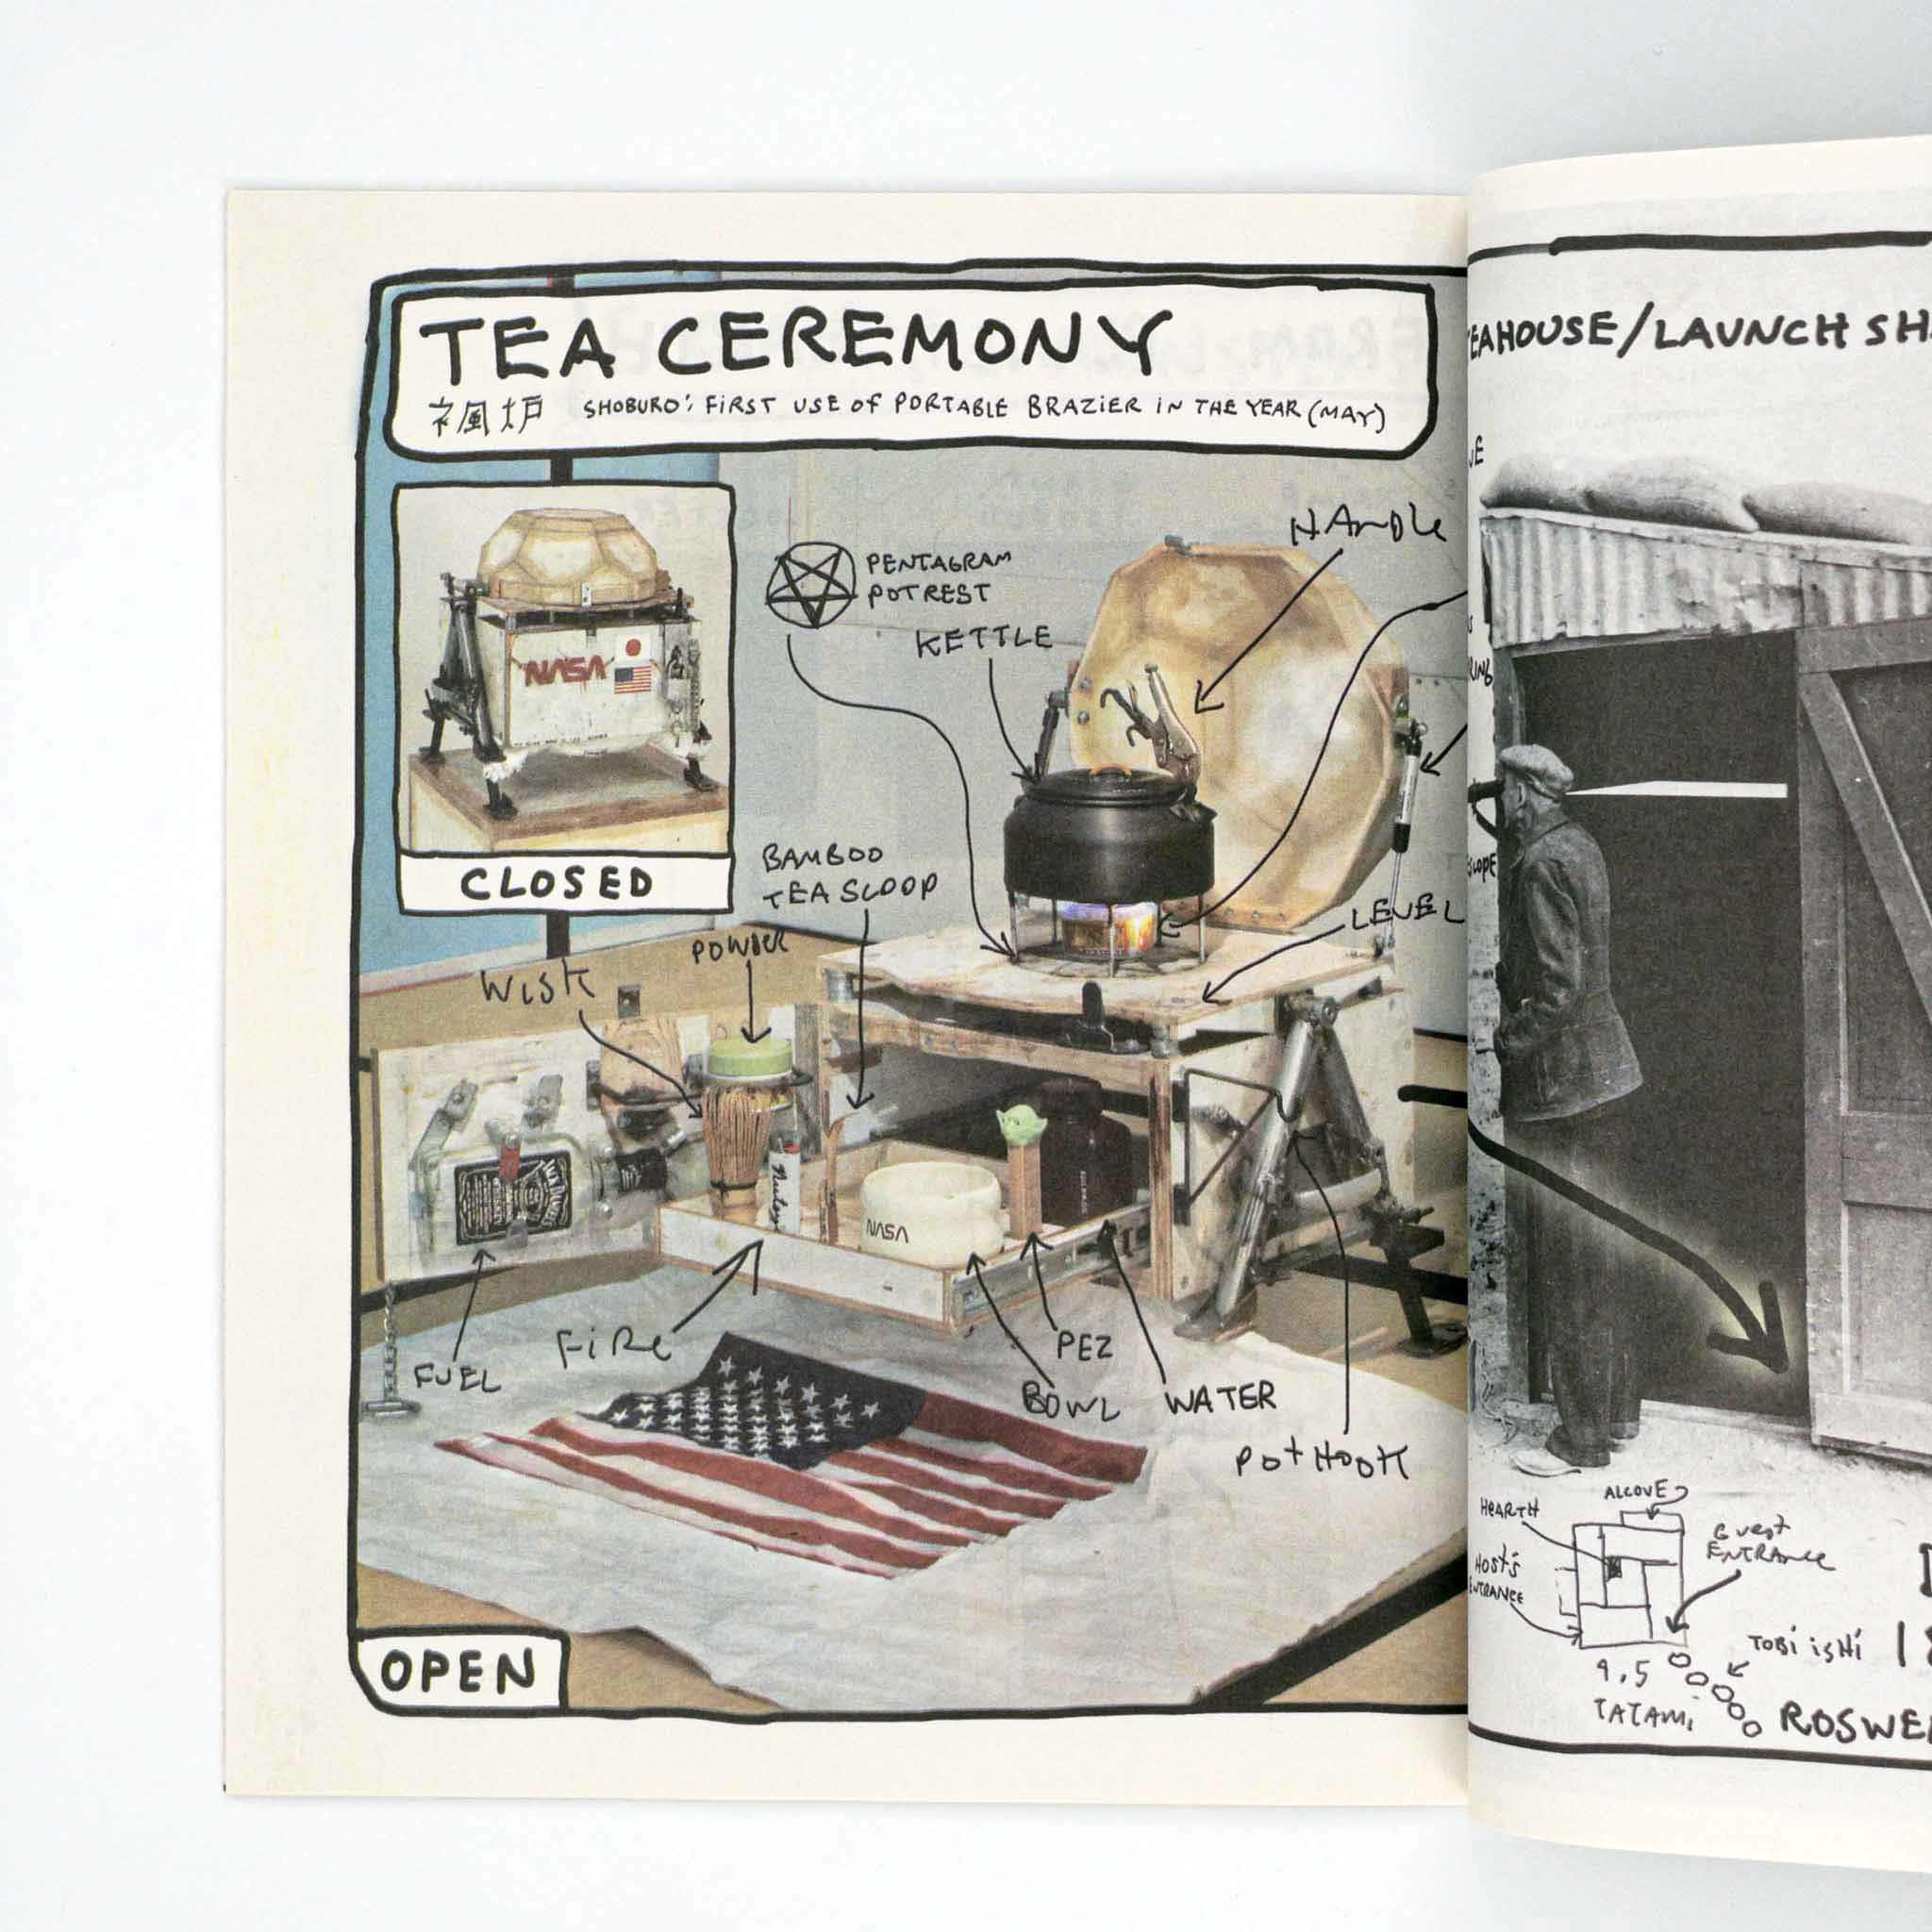 TEA CEREMONY
初風炉 SHOBURO: FIRST USE OF PORTABLE BRAZIER IN THE YEAR (MAY)
NASA
CLOSED
PENTAGRAM
POT REST
KETTLE
HANDLE
BAMBOO
TEA SCOOP
POWDER
WISK
LEVEL
NASA
FUEL
FIRE
PEZ
BOWL
WATER
POT HOOK
OPEN
EAHOUSE/LAUNCH SH
RING
SCOPE
ALCOVE
HEARTH
GUEST
ENTRANCE
HOST'S
ENTRANCE
TOBI ISHI
4.5
TATAMI
ROSWE